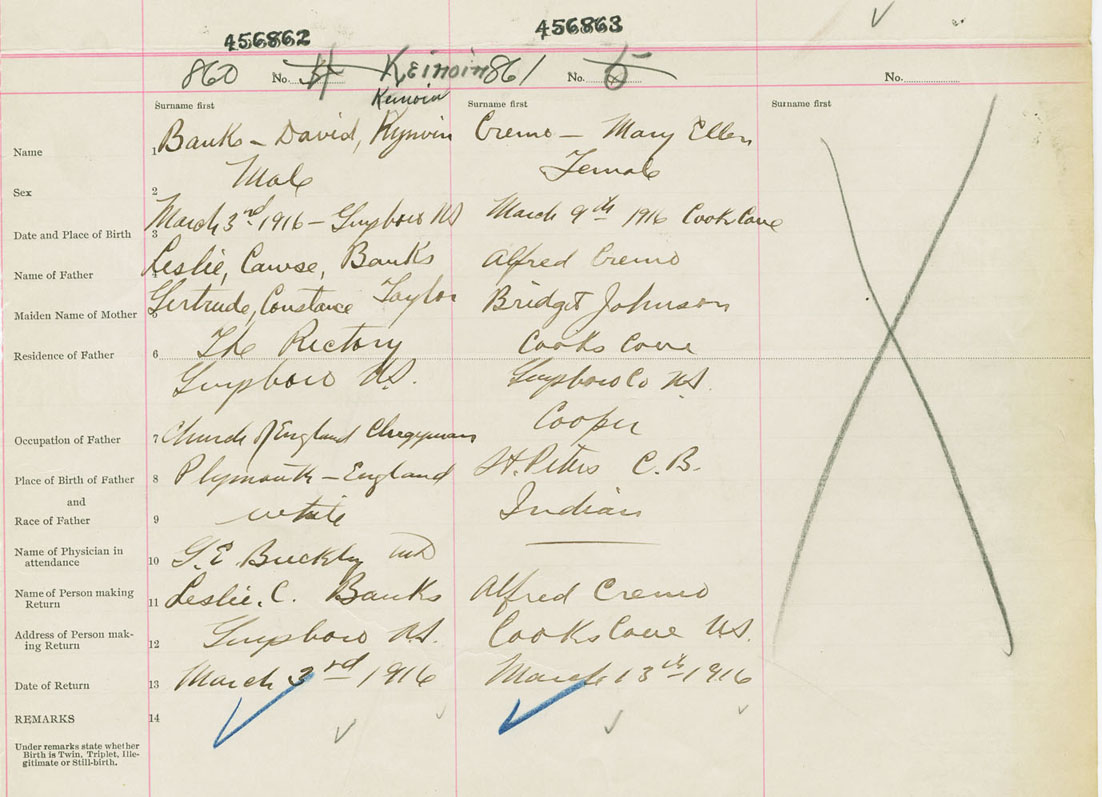 456862
456863
860 No. 4 Keinoin
861 No. 5
No.
Keinoin
Surname first
Surname first
Surname first
Name 1 Banks - David, Kynvin
Cremo - Mary Ellen
Sex 2 Male
Female
Date and Place of Birth 3 March 3rd 1916 - Guysboro NS
March 9th 1916 Cooks Cove
Name of Father Leslie, Cawse, Banks
Alfred Cremo
Maiden Name of Mother Gertrude, Constance Taylor
Bridget Johnson
Residence of Father 6 The Rectory
Cooks Cove
Guysboro N.S.
Guysboro Co N.S.
Occupation of Father 7 Church of England Clergyman
Cooper
Place of Birth of Father 8 Plymouth - England
St. Peters C.B.
and
Race of Father 9 white
Indian
Name of Physician in
attendance 10 G. E. Buckley MD
Name of Person making
Return 11 Leslie. C. Banks
Alfred Cremo
Address of Person mak-
ing Return 12 Guysboro N.S.
Cooks Cove N.S.
Date of Return 13 March 3rd 1916
March 13th 1916
REMARKS 14
Under remarks state whether
Birth is Twin, Triplet, Ille-
gitimate or Still-birth.